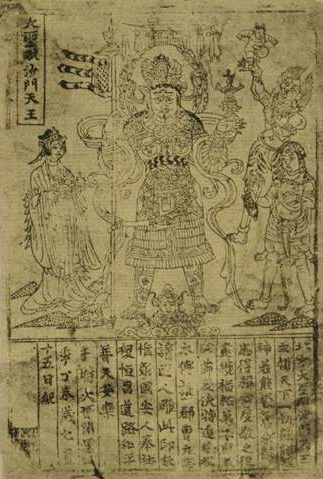 大聖毗沙門天王
北方大聖毗沙門天王
主領天下一切雜類鬼
神若能發意求願悉
得稱心虔敬之徒
盡獲福祐弟子歸義
軍節度使特進檢校
太傅譙郡曹元忠
請匠人雕此印板
惟願國安人泰社
稷恒昌道路和平
普天安樂
于時大晉開運四
年丁未歲七月十
五日紀